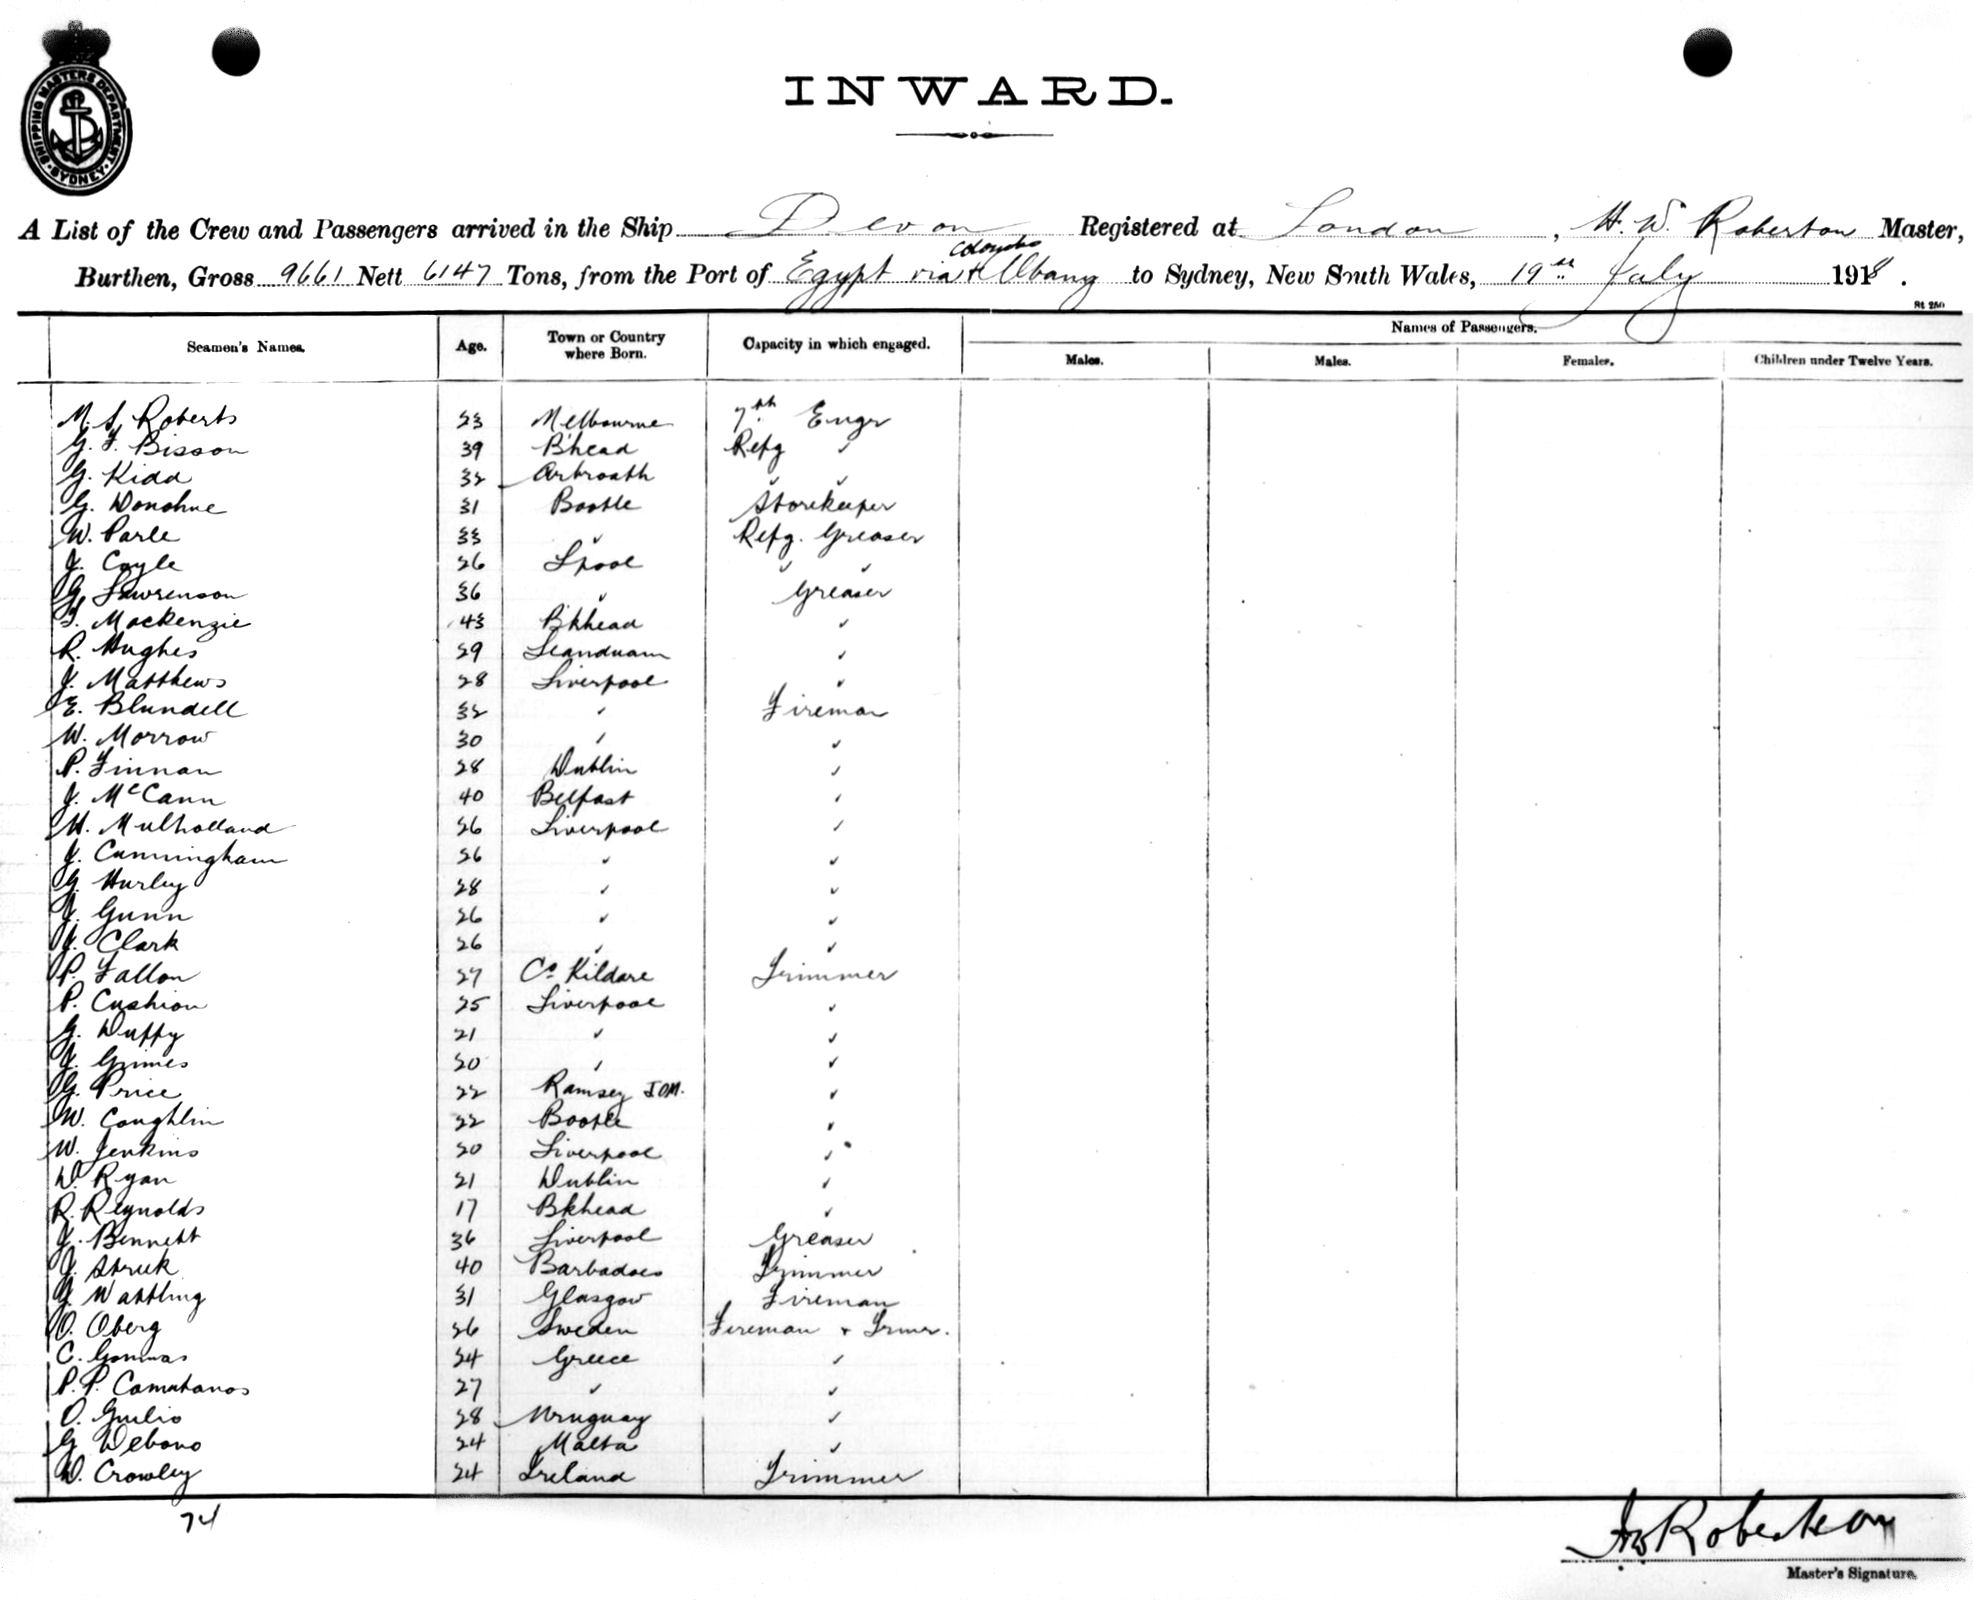 SHIPPING MASTERS DEPARTMENT
SYDNEY
INWARD.
A List of the Crew and Passengers arrived in the Ship Devon Registered at London, H. W. Roberton Master,
Colombo
Burthen, Gross 9661 Nett 6147 Tons, from the Port of Egypt via + Albany to Sydney, New South Wales, 19th July 1918.
St 250
Seamen's Names. Age. Town or Country where Born. Capacity in which engaged. Names of Passengers.
Males. Males. Females. Children under Twelve Years.
M. S. Roberts 23 Melbourne 7th Engr
G. F. Bisson 39 B'head Refg "
G. Kidd 32 Arbroath " "
G. Donohue 31 Bootle Storekeeper
W. Parle 33 " Refg. Greaser
J. Coyle 26 Lpool " "
G. Lawrenson 36 " Greaser
F. Mackenzie 43 B'khead "
R. Hughes 29 "
J. Matthews 28 Liverpool "
E. Blundell 32 " Fireman
W. Morrow 30 " "
P. Finnan 28 Dublin "
J. McCann 40 Belfast "
H. Mulholland 26 Liverpool "
J. Cunningham 26 " "
G. Hurley 28 " "
J. Gunn 26 " "
J. Clark 26 " "
P. Fallon 27 Co. Kildare Trimmer
P. Cushion 25 Liverpool "
G. Duffy 21 " "
J. Grimes 20 " "
G. Price 22 Ramsey IOM. "
W. Coughlin 22 Bootle "
W. Jenkins 20 Liverpool "
D. Ryan 21 Dublin "
R. Reynolds 17 Bkhead "
J. Bennett 36 Liverpool Greaser
J. 40 Barbadoes Trimmer
Wattling 31 Glasgow Fireman
O. Oberg 26 Sweden Fireman + Trmr.
C. 24 Greece "
P. P. 27 " "
O. Guilio 28 Uruguay "
G. Debono 24 Malta "
D. Crowley 24 Ireland Trimmer
74
HW Roberton
Master's Signature.